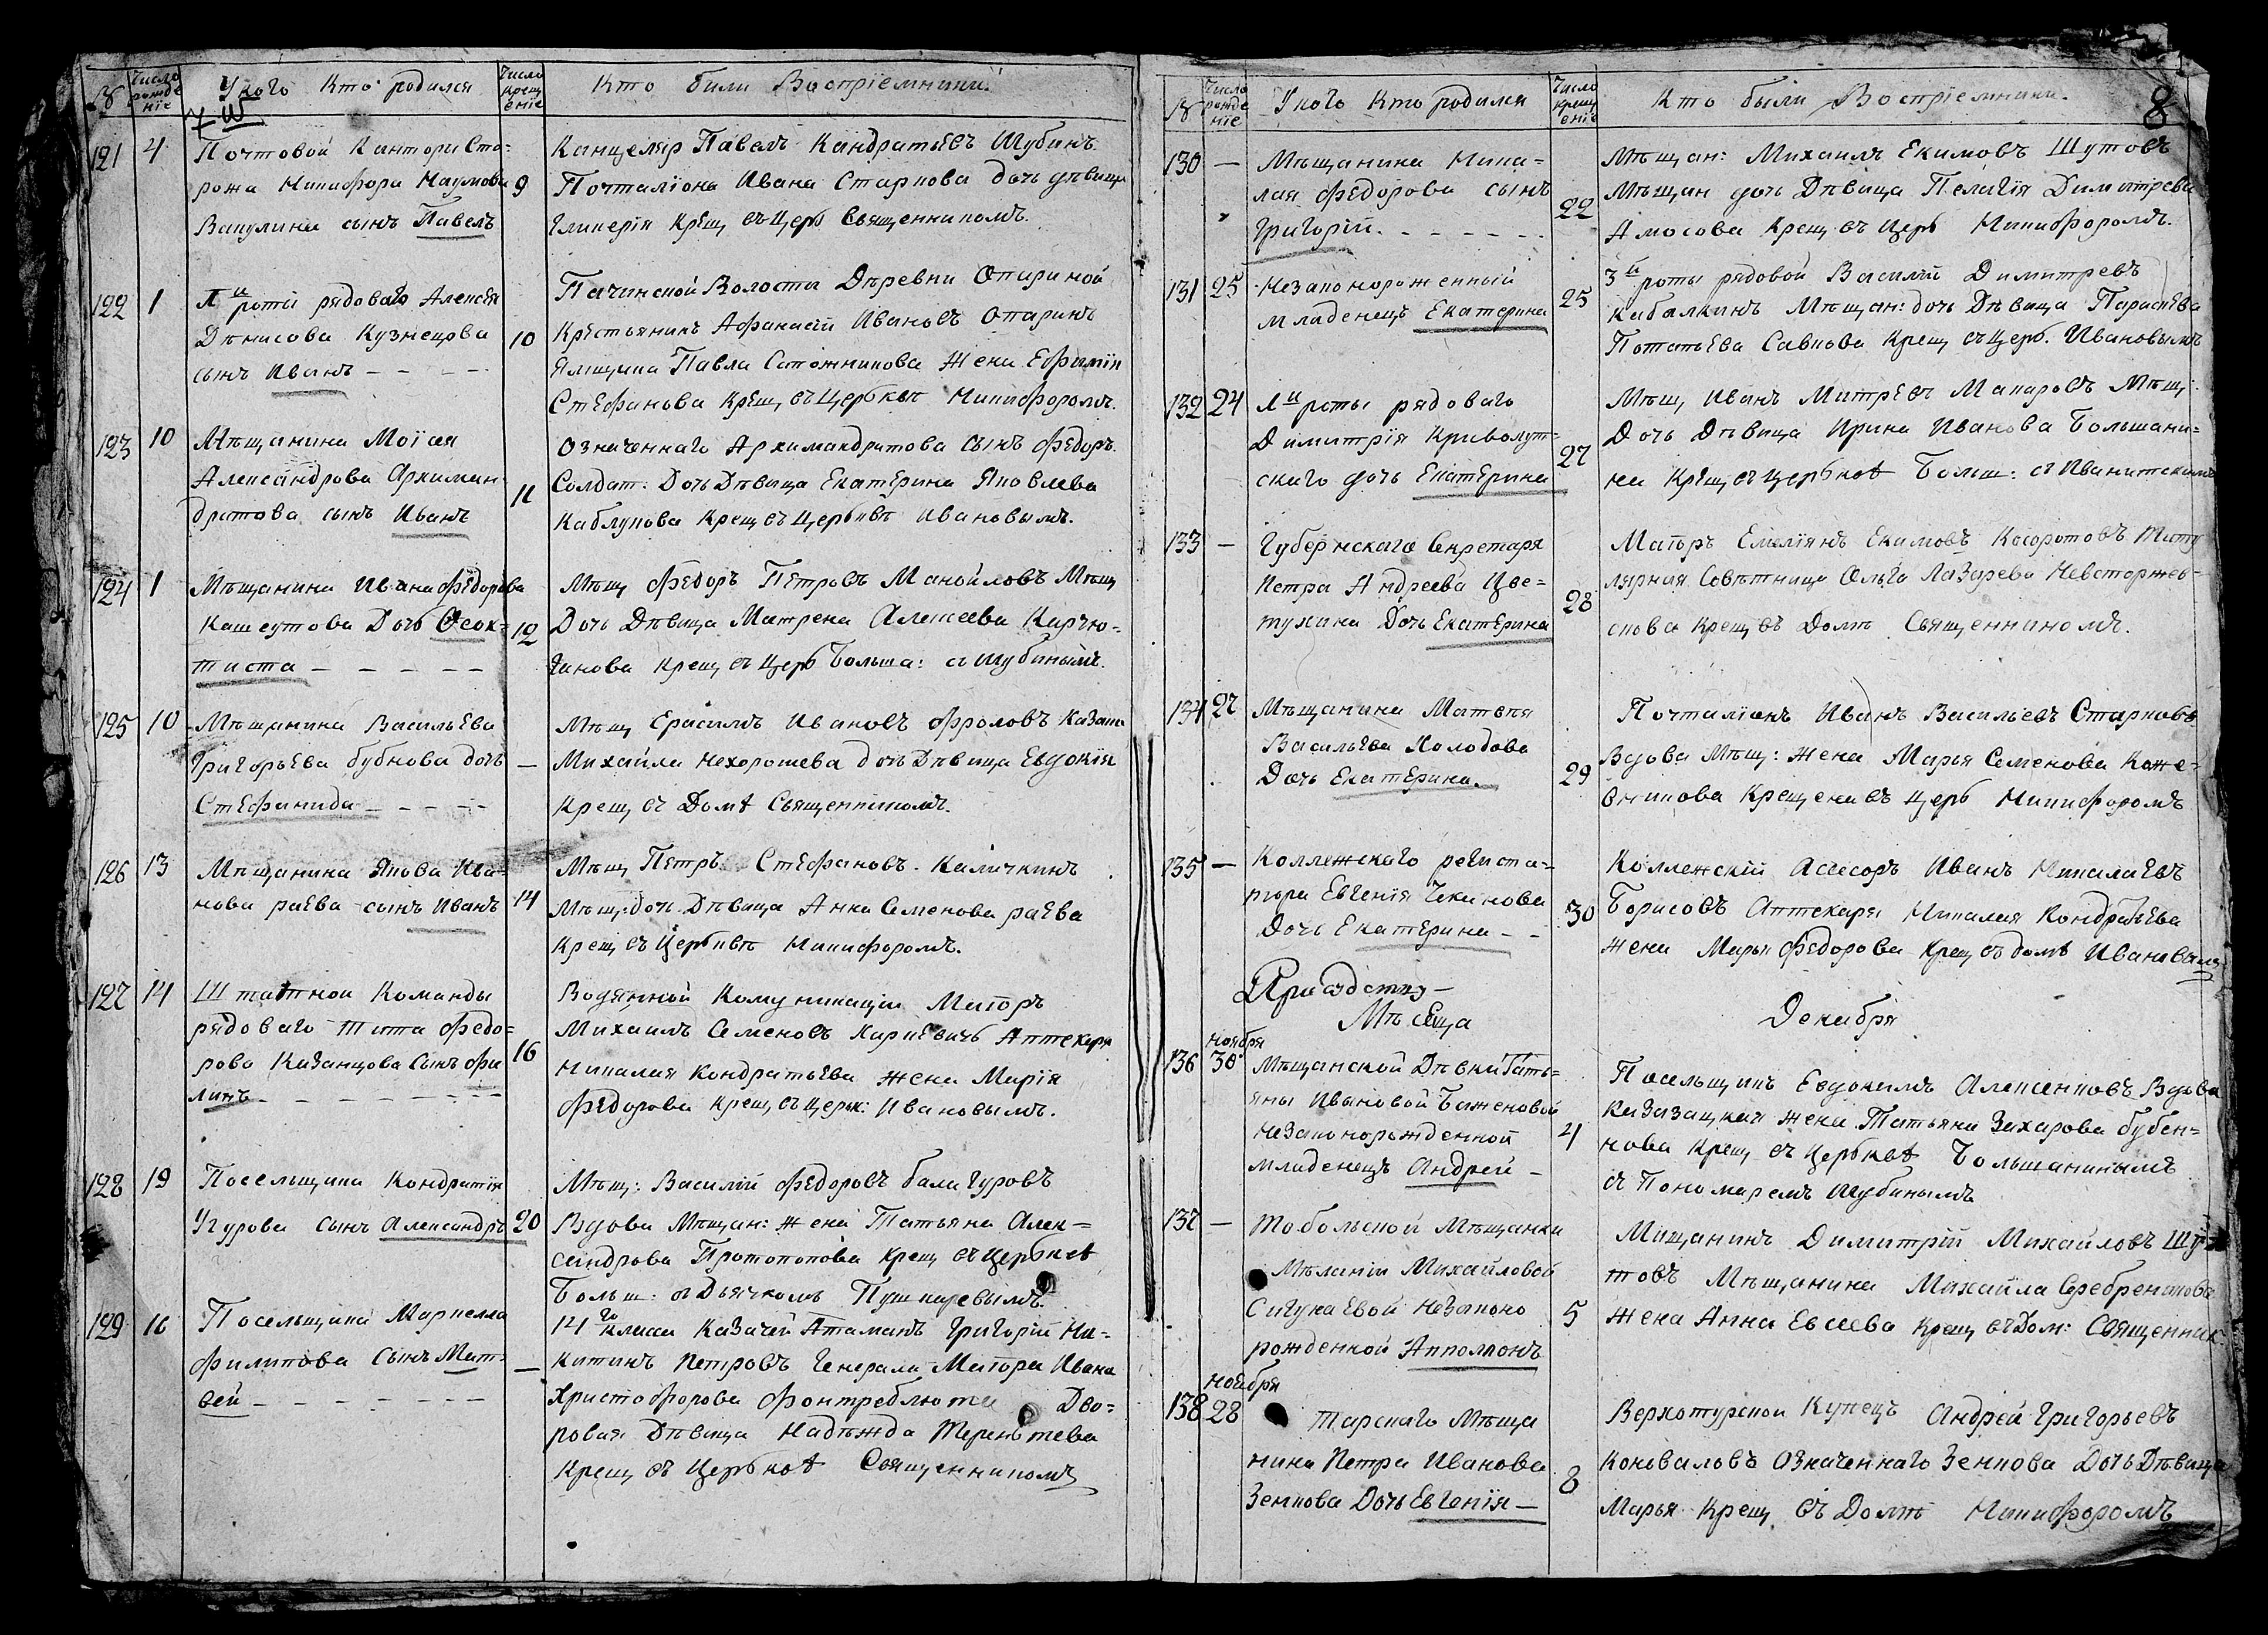 № Число рожде нїе У кого Кто родился Число крещ енїе Кто были Воспрїемники
7 ш
121 4 Почтовой Канторы Сто=
рожа Никифора Наумова
Вакулина сынъ Павелъ
9
Канцеляр Павелъ Кандратьевъ Шубинъ
Почталїона Ивана Старкова дочь дѣвица
Гликерїя Крещ въ Церь Священникомъ.
122 1 Л й роты рядоваго Алексѣя
Дѣнисова Кузнецова
сынъ Иванъ
10
Пачинской Волости Дѣревни Опариной
Крѣстьянинъ Афанасїй Ивановъ Опаринъ
Ямщика Павла Сапожникова Жена Ефимїя
Стефанова Крещ въ Церьквѣ Никифоромъ.
123 10 Мѣщанина Моїсея
Александрова Архиман
дритова сынъ Иванъ
11
Означеннаго Архимандритова Сынъ Федоръ
Солдат. Дочь Дѣвица Екатерина Яковлева
Каблукова Крещ въ Церьквѣ Ивановымъ.
124 1 Мѣщанина Ивана Федорова
Кашеутова Дочь Феок=
тиста
12
Мѣщ Федоръ Петровъ Манойловъ Мѣщ
Дочь Дѣвица Матрена Алексеева Кирчю=
гинова Крещ въ Церь Больша: съ Шубинымъ.
125 10 Мѣщанина Васильева
Григорьева бубнова дочь
Стефанида
—
Мѣщ Ерасимъ Ивановъ Фроловъ Казака
Михайла Нехорошева дочь Дѣвица Евдокїя
Крещ въ Домѣ Священникомъ.
126 13 Мѣщанина Якова Ива=
нова раева сынъ Иванъ
14
Мѣщ Петръ Стефановъ Каличкинъ
Мѣщ: дочь Дѣвица Анна Семенова раева
Крещ въ Церьквѣ Никифоромъ.
127 14 Штатной Команды
рядоваго Тита Федо=
рова Казанцова Сынъ Фи
липъ
16
Водянной Комуникацїи Маїоръ
Михаилъ Семеновъ Карпѣвичь Аптекаря
Николая Кондратьева жена Марїя
Федорова Крещ въ Церьк: Ивановымъ.
128 19 Посельщика Кондратїя
Угурова сынъ Александръ
20
Мѣщ: Василїй Федоровъ балагуровъ
Вдова Мѣщан: жена Татьяна Алек=
сандрова Протопопова Крещ въ Церькве
Больш: съ Дьячкомъ Пушкаревымъ.
129 16 Посельщика Маркелла
Филипова Сынъ Мат=
вей
—
14 го класса Казачей Атаманъ Григорїй Ни=
китинъ Петровъ Генерала Маїора Ивана
Христофорова Фонтреблюта Дво=
ровая Дѣвица Надѣжда Терентева
Крещ въ Церькве Священникомъ
8
№ Число рожде нїе У кого Кто родился Число крещ енїе Кто были Воспрїемники.
130 — Мѣщанина Нико=
лая Федорова сынъ
Григорїй.
22
Мѣщан: Михаилъ Екимовъ Шутовъ
Мѣщан дочь Дѣвица Пелагїя Димитрева
Амосова Крещ въ Церь Никифоромъ.
131 25 Незаконорожденный
младенецъ Екатерина
25
3 й роты рядовой Василїй Димитревъ
Кабалкинъ Мѣщан: дочь Дѣвица Параскѣва
Потапьева Савкова Крещ въ Церь. Ивановымъ
132 24 Л й роты рядоваго
Димитрїя Криволут=
скаго дочь Екатерина
27
Мѣщ Иванъ Митрѣвъ Макаровъ Мѣщ:
Дочь Дѣвица Ирина Иванова Большани=
на Крещ въ Церькве Больш: съ Иванитскимъ
133 — Губернскаго Секретаря
Петра Андреева Цве=
тухина Дочь Екатерина
28
Маїоръ Емелїянъ Екимовъ Косоротовъ Титу
лярная Совѣтница Ольга Лазарева Невсторжев=
скова Крещ въ Домѣ Священникомъ.
134 27 Мѣщанина Матвѣя
Васильева Холодова
Дочь Екатерина.
29
Почталїонъ Иванъ Васильевъ Старковъ
Вдова Мѣщ: жена Марья Семенова Коже=
вникова Крещена въ Церь Никифоромъ
135 — Коллежскаго региста=
тора Евгенїя Чеканова
Дочь Екатерина
30
Коллежскїй Асесоръ Иванъ Николаевъ
Борисовъ Аптекаря Николая Кондратьева
жена Марья Федорова Крещ въ домѣ Ивановымъ
Мѣсяца Декабря
136 ноября 30 Мѣщанской Дѣвки Тать=
яны Ивановой Баженовой
Незаконорожденной
младенецъ Андрей
4
Посельщикъ Евдокимъ Алексенковъ Вдова
Казазацкая жена Татьяна Захарова бубен=
нова Крещ въ Церькве Большанинымъ
съ Пономаремъ Шубинымъ
137 — Тобольской Мѣщанки
Мѣланїи Михайловой
Сигунаевой Незаконо
рожденной Апполлонъ
5
Мищанинъ Димитрїй Михайловъ Шу=
товъ Мѣщанина Михайла Серебреникова
Жена Анна Евсеева Крещ въ Дом: Священник
138 ноября 28 Тарскаго Мѣща
нина Петра Иванова
Зенкова Дочь Евгенїя
8
Верхотурской Купецъ Андрей Григорьевъ
Коноваловъ Означеннаго Зенкова Дочь Дѣвица
Марья Крещ въ Домѣ Никифоромъ